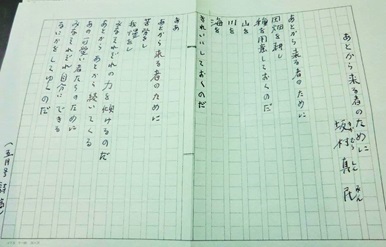 あとから来る者のために
坂村真民
しん みん
あとから来る者のために
田畑を耕し
種を用意しておくのだ
山を
川を
海を
きれいにしておくのだ
ああ
あとから来る者のために
苦労をし
我慢をし
みなそれぞれの力を傾けるのだ
あとからあとから続いてくる
あの可愛い者たちのために
みなそれぞれ自分にできる
なにかをしてゆくのだ